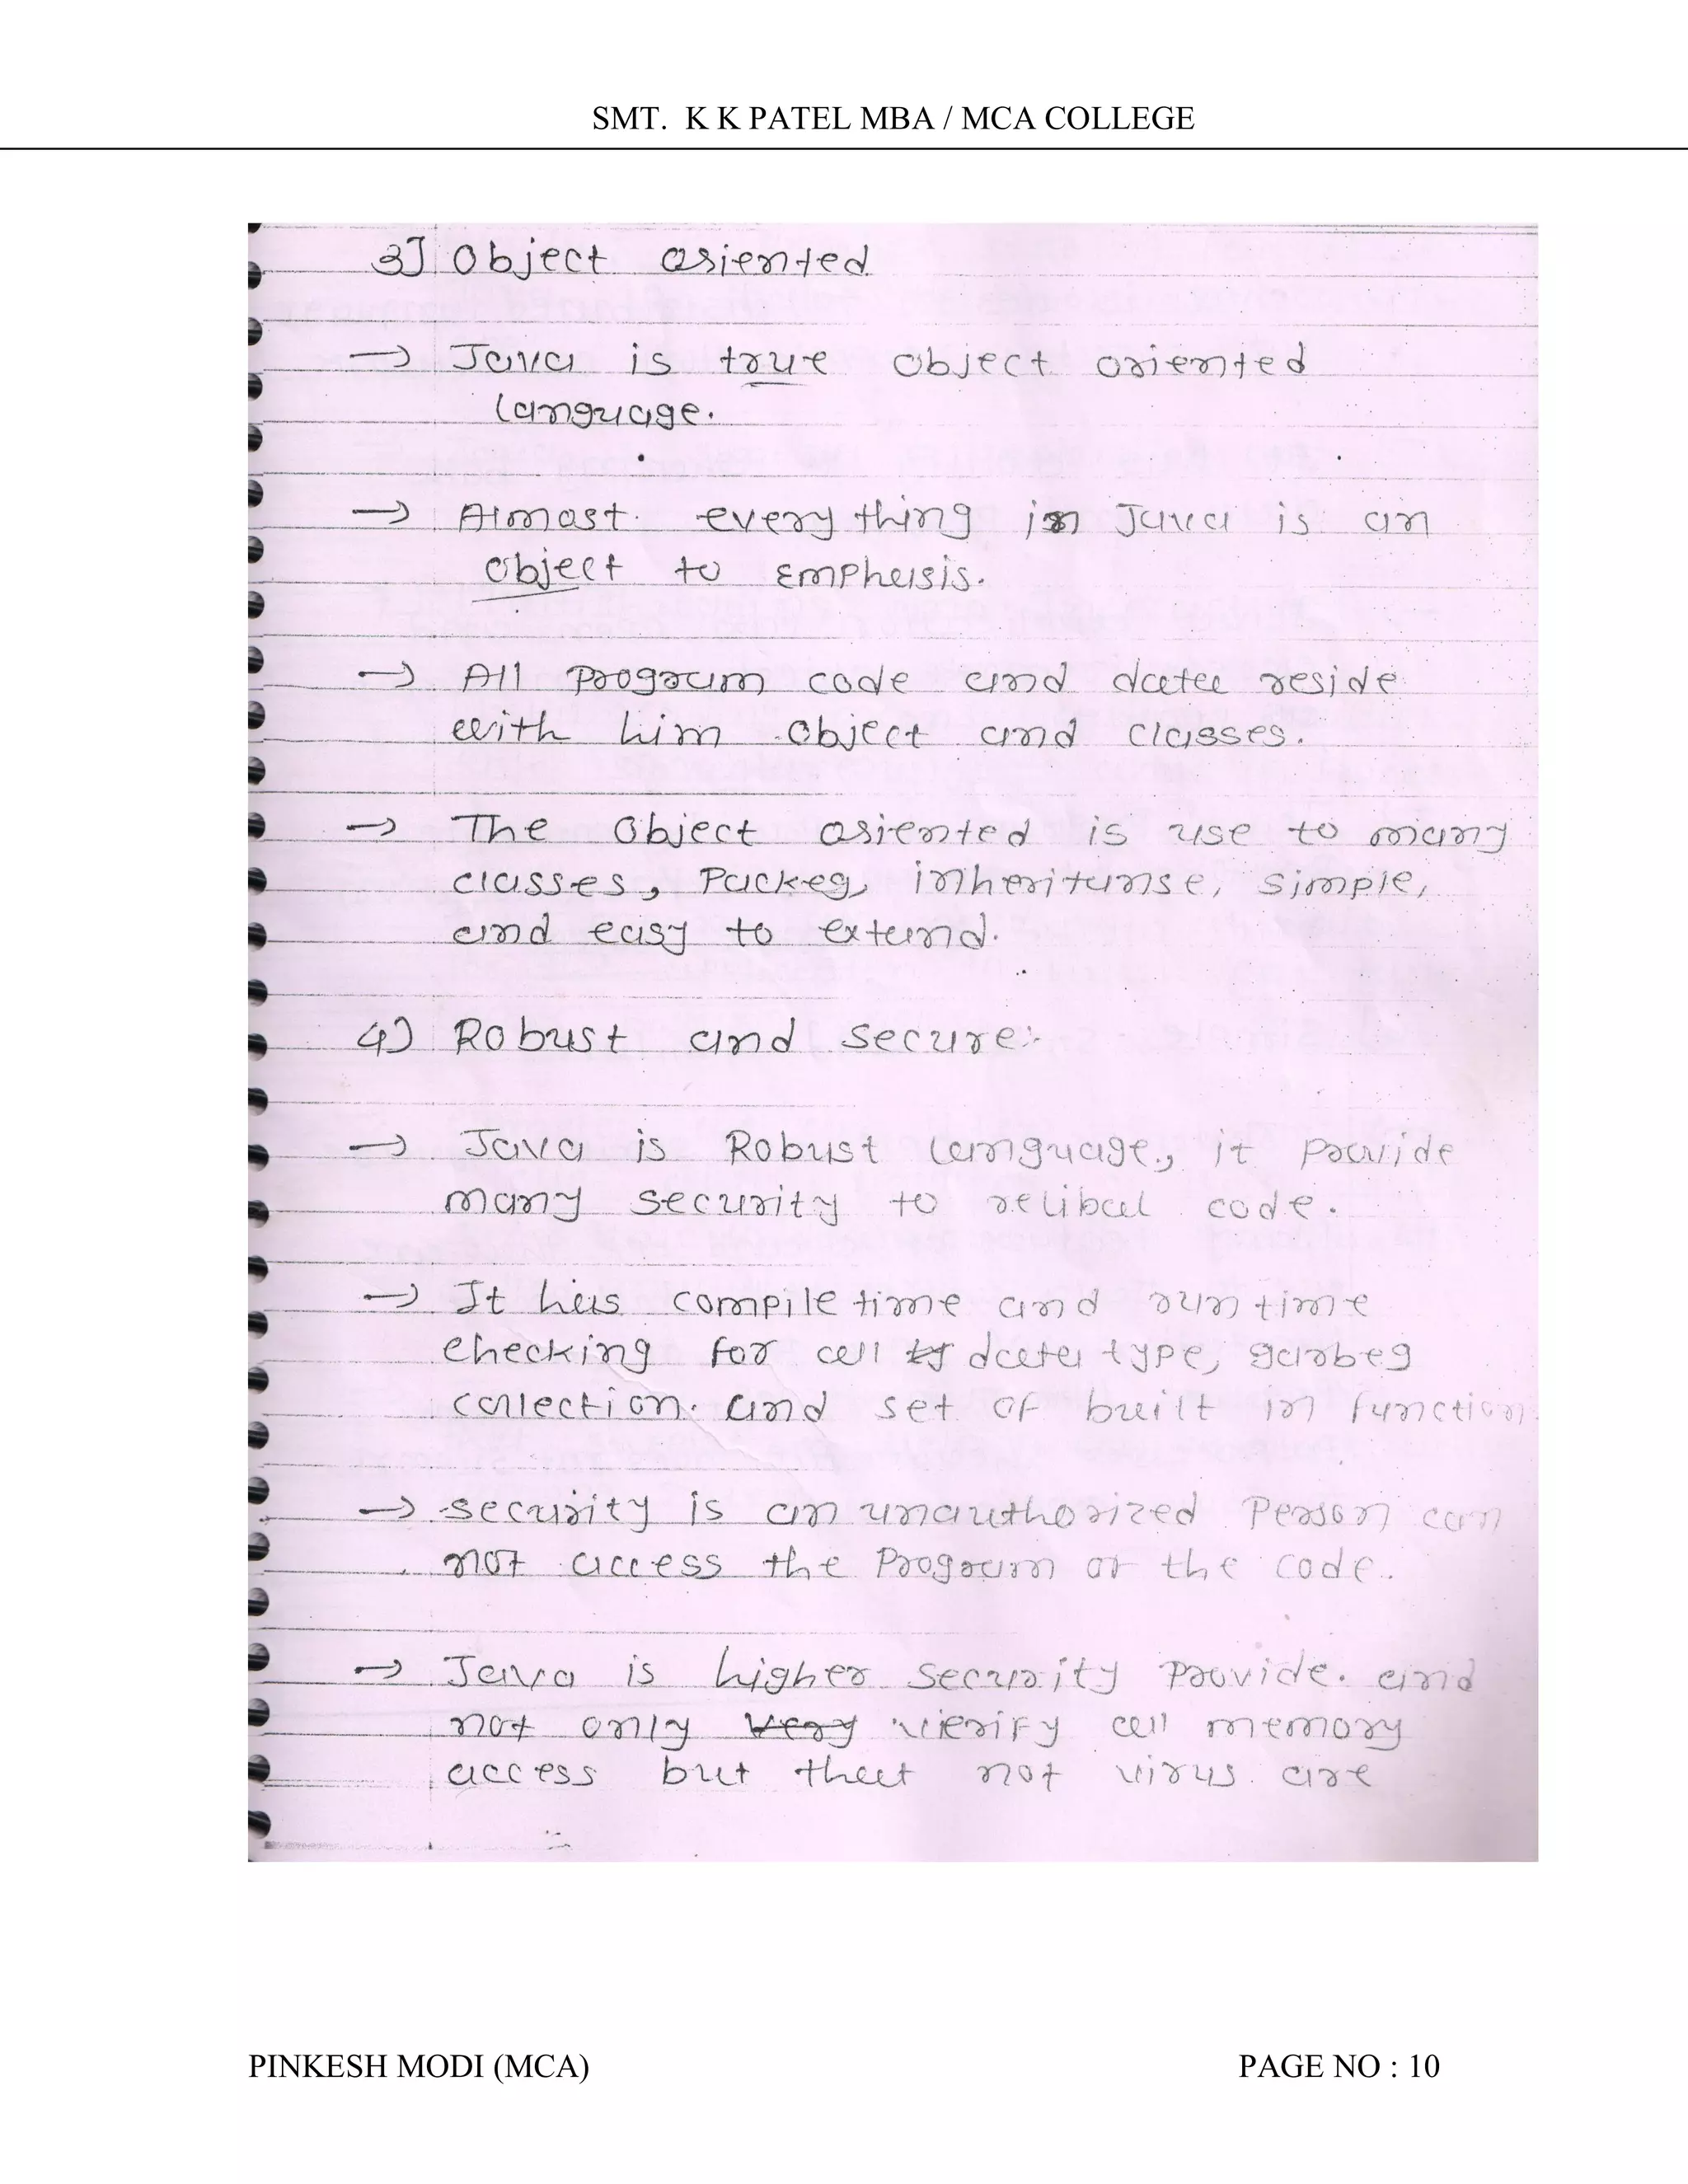 SMT. K K PATEL MBA / MCA COLLEGE
3] Object oriented
→ Java is true object oriented
language.
→ Almost every thing in Java is an
object to Emphasis.
→ All Program code and data reside
with him object and classes.
→ The Object oriented is use to many
classes, Packeg, inheritanse, simple,
and easy to extand.
4) Robust and secure:-
→ Java is Robust language., it provide
many security to relibal code.
→ It has compile time and run time
checking for all data type, garbeg
collection. and set of built in function.
→ security is an unauthorized Person can
not access the Program or the code.
→ Java is higher security Provide. and
not only very verify all memory
access but that not virus are
PINKESH MODI (MCA) PAGE NO : 10